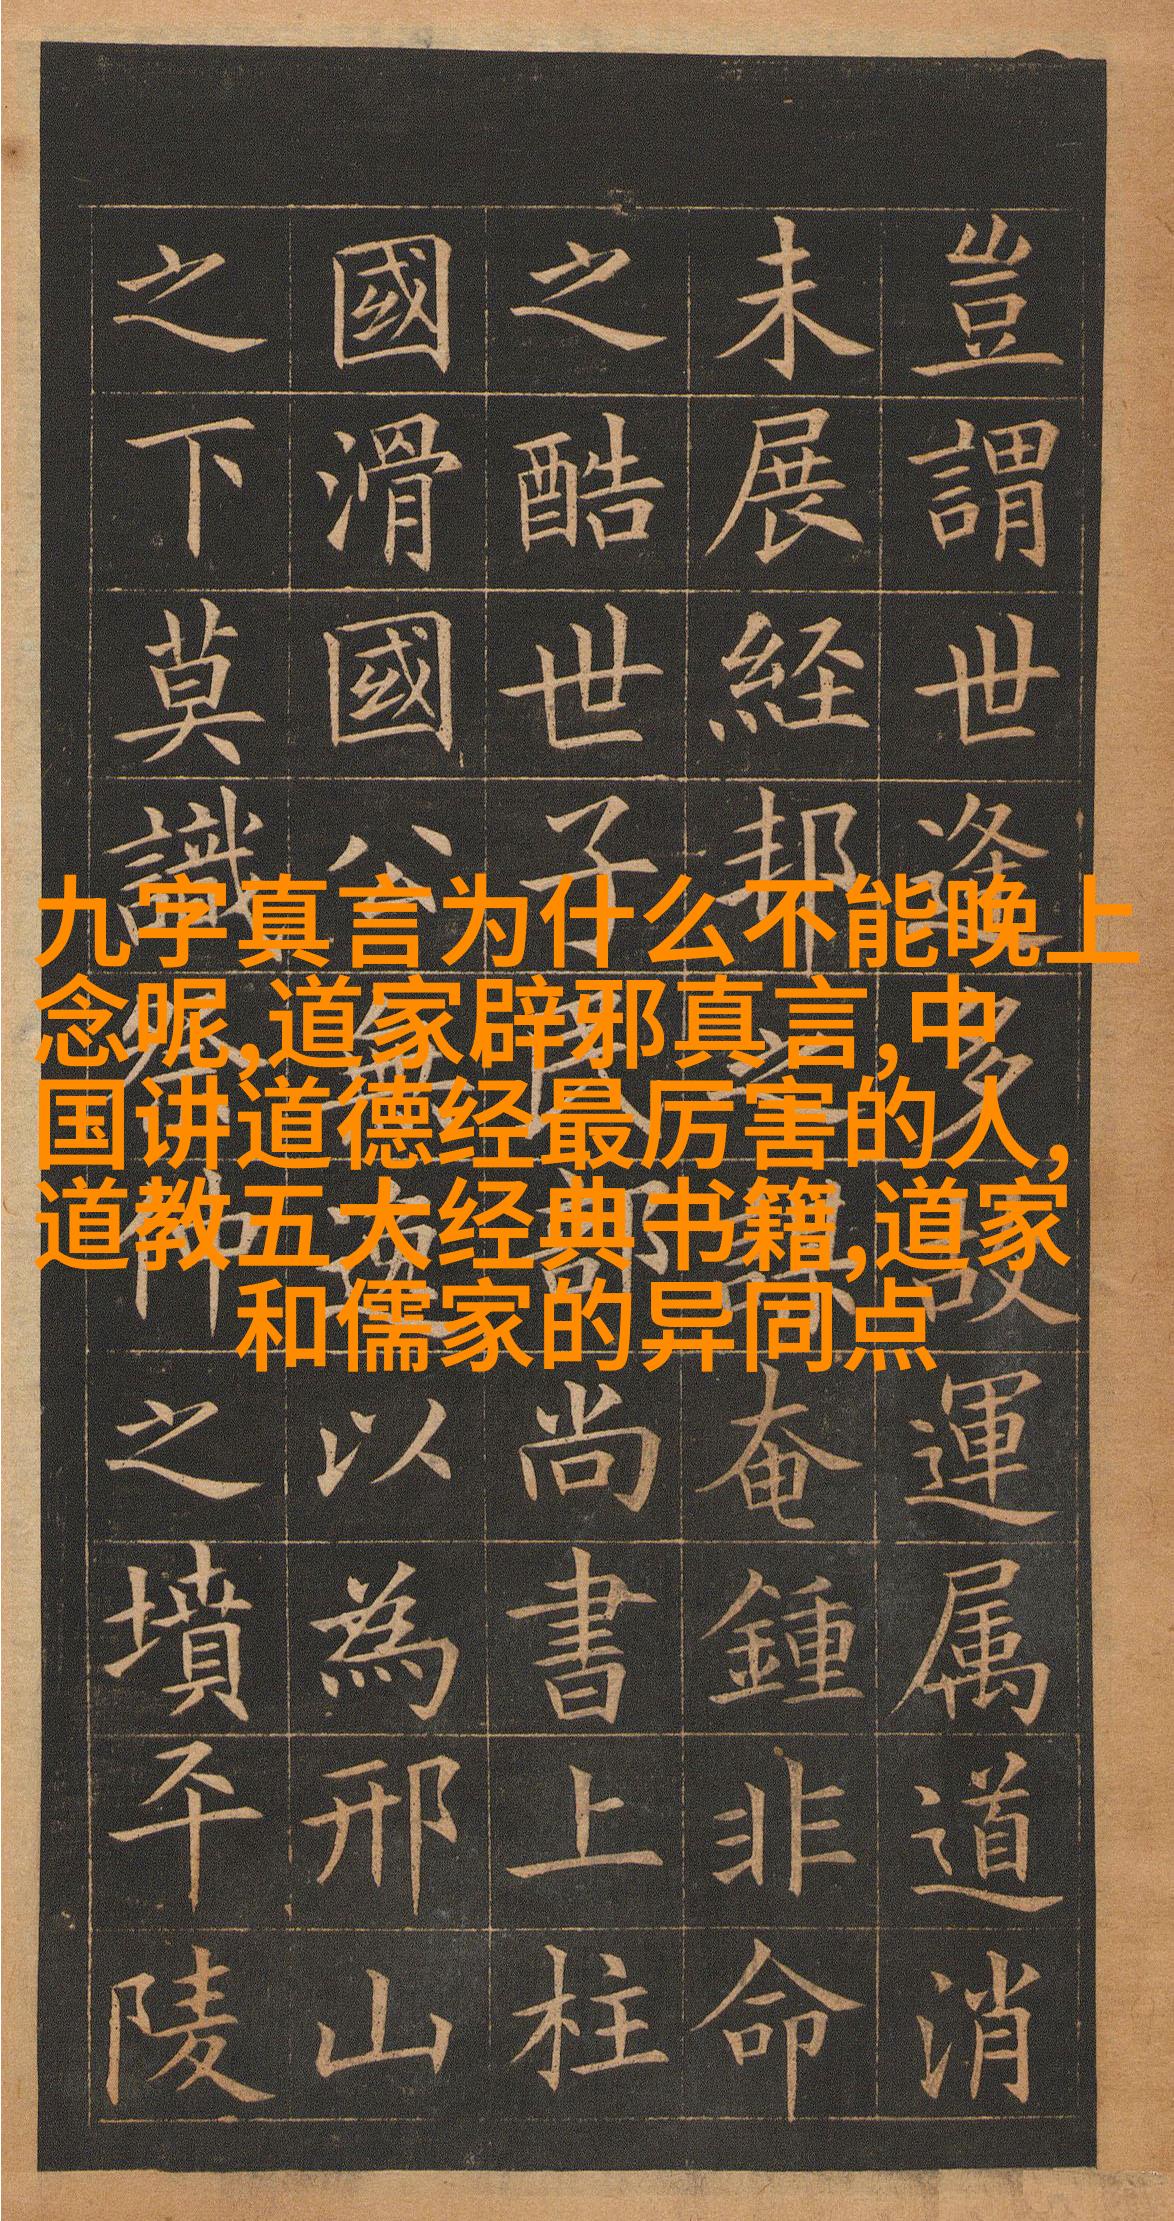 豈謂世逢多故運属道消
未展経邦之謀奄鍾非命
之酷世子民部尚書上柱
國滑國公無逸以為邢山
之下莫識祭仲之墳平陵
九字真言为什么不能晚上
念呢,道家辟邪真言,中
国讲道德经最厉害的人,
道教五大经典书籍,道家
和儒家的异同点